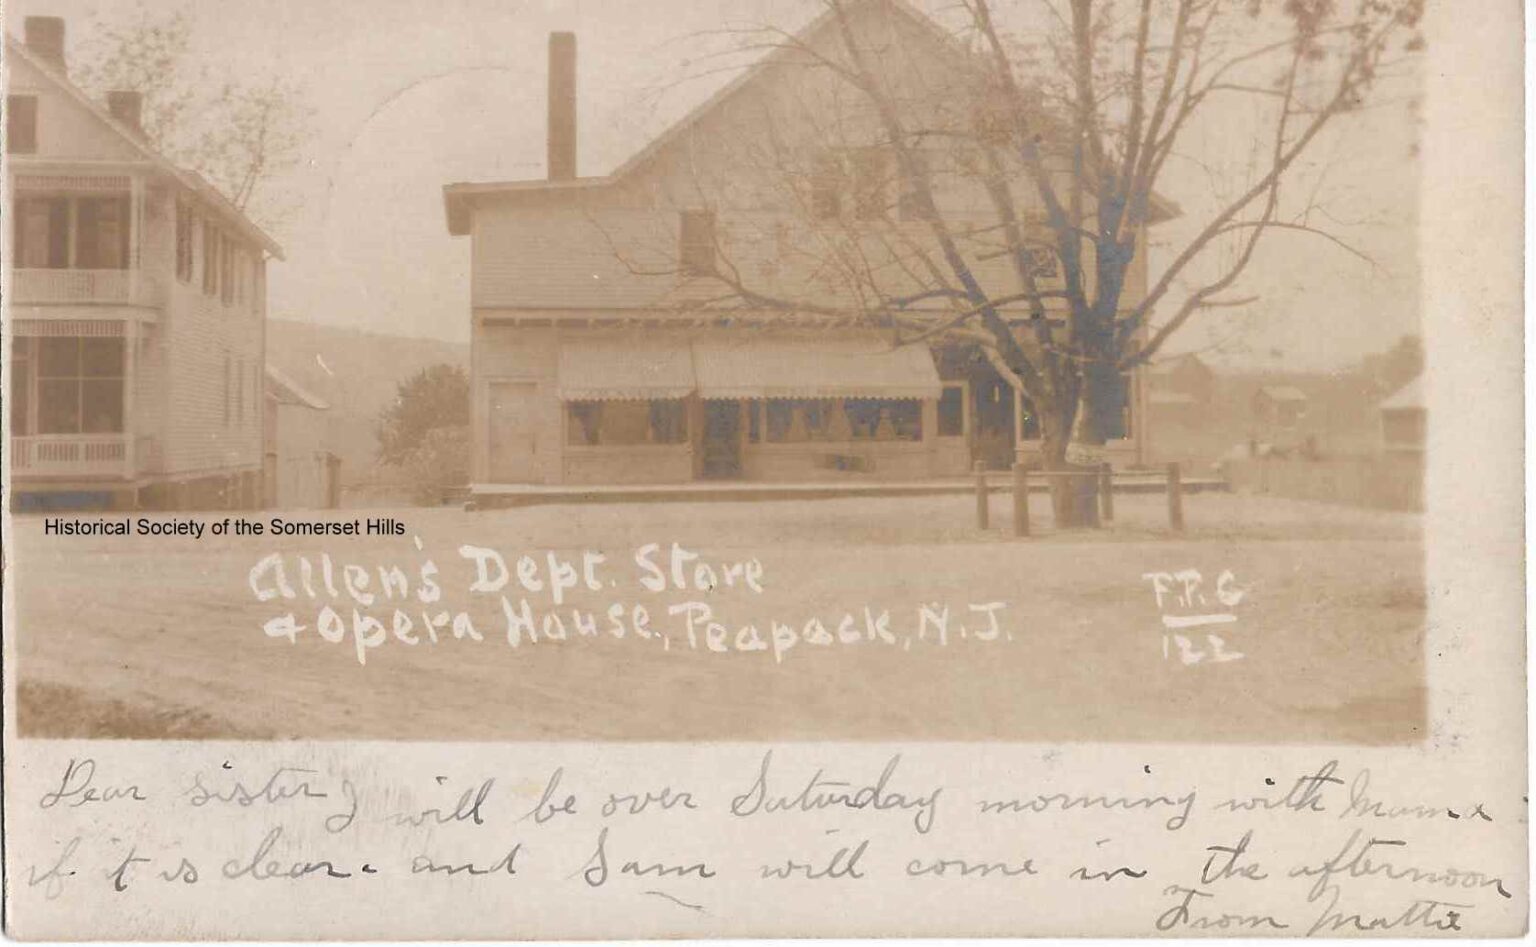 Historical Society of the Somerset Hills
Allen's Dept. Store
& Opera House, Peapack, N.J.
F.P.C
122
Dear sister I will be over Saturday morning with Mama
if it is clear. and Sam will come in the afternoon
From Mattie